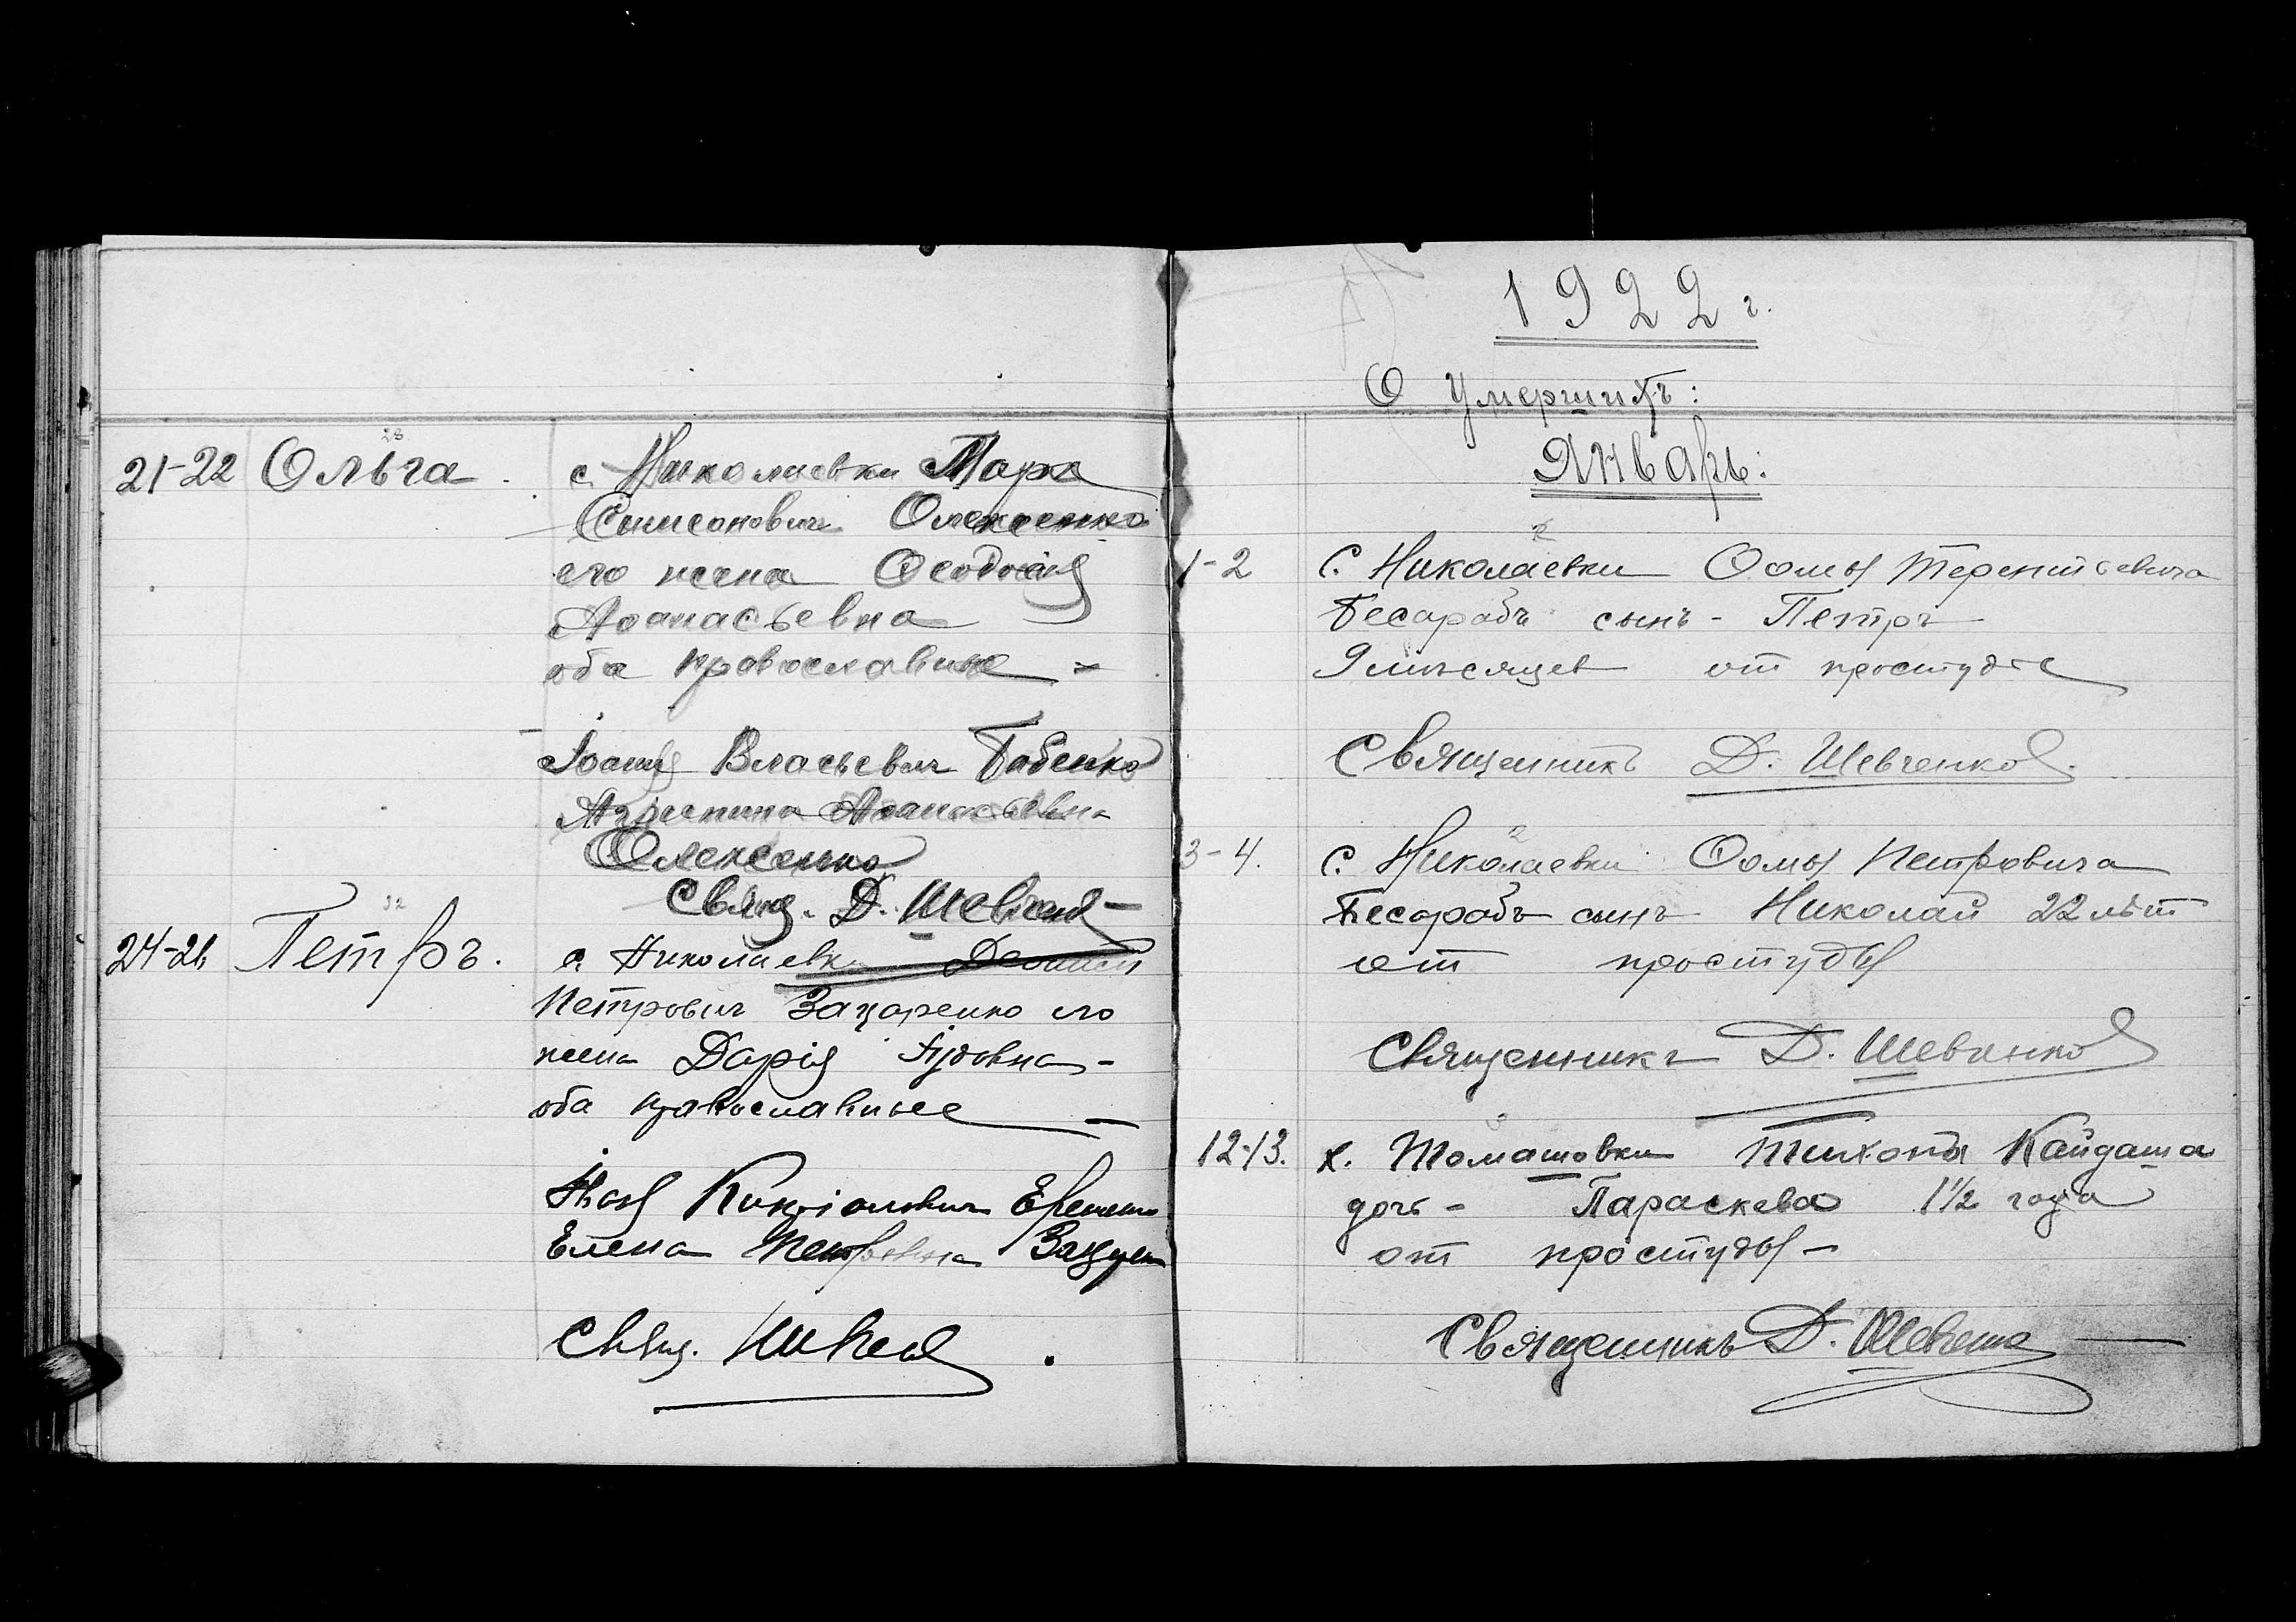 28
21-22 Ольга. с. Николаевки Марк
Симеонович Олексенко
его жена Ѳеодосія
Аѳанасьевна
оба православные
Іоаннъ Власьевич Бабенко
Агрипина Аѳанасьевна
Олексенко
Свящ. Д. Шевченко
32
24-26 Петръ. с. Николаевки
Петрович Захаренко его
жена Дарія Іудовна -
оба православные
Елена Петровна
Свящ.
1922 г.
О Умершихъ:
Январь:
2
1-2 С. Николаевки Ѳомы Терентьевича
Бесарабъ сынъ - Петръ
9 мѣсяцев от простуды
Священникъ Д. Шевченко.
2
3-4. С. Николаевки Ѳомы Петровича
Бесарабъ сынъ Николай 22 лѣт
от простуды
Священникъ Д. Шевченко
3
12-13. х. Томашовки Тихона Кайдаша
дочь - Параскева 1 1/2 года
от простуды -
Священникъ Д. Шевченко